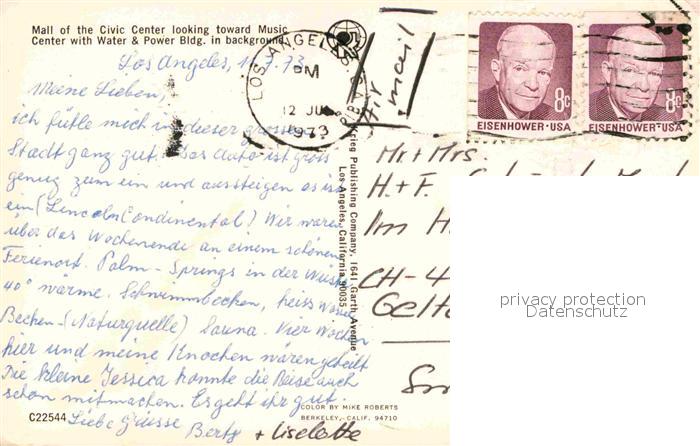 Mall of the Civic Center looking toward Music
Center with Water & Power Bldg. in background.
Los Angeles, 11.7.73
Meine Lieben,
ich fühle mich in dieser grossen
Stadt ganz gut. Das Auto ist gross
genug zum ein und aussteigen es ist
ein (Lincoln Condinental) Wir waren
über das Wochenende an einem schönen
Ferienort. Palm-Springs in der Wüste
40° wärme. Schwimmbecken, heiss Wasser
Becken-(Naturquelle) Sauna. Vier Wochen
hier und meine Knochen wären geheilt
Die kleine Jessica konnte die Reise auch
schon mitmachen. Es geht ihr gut.
Liebe Grüsse
Berty + Liselotte
C22544
COLOR BY MIKE ROBERTS
BERKELEY, CALIF. 94710
Krieg Publishing Company, 1641 Garth Avenue
Los Angeles, California 90035
LOS ANGELES
PM
12 JUL
1973
Air
mail
8c
EISENHOWER·USA
8c
EISENHOWER·USA
Mr + Mrs.
H. + F.
Im H
CH-4
Gelte
privacy protection
Datenschutz